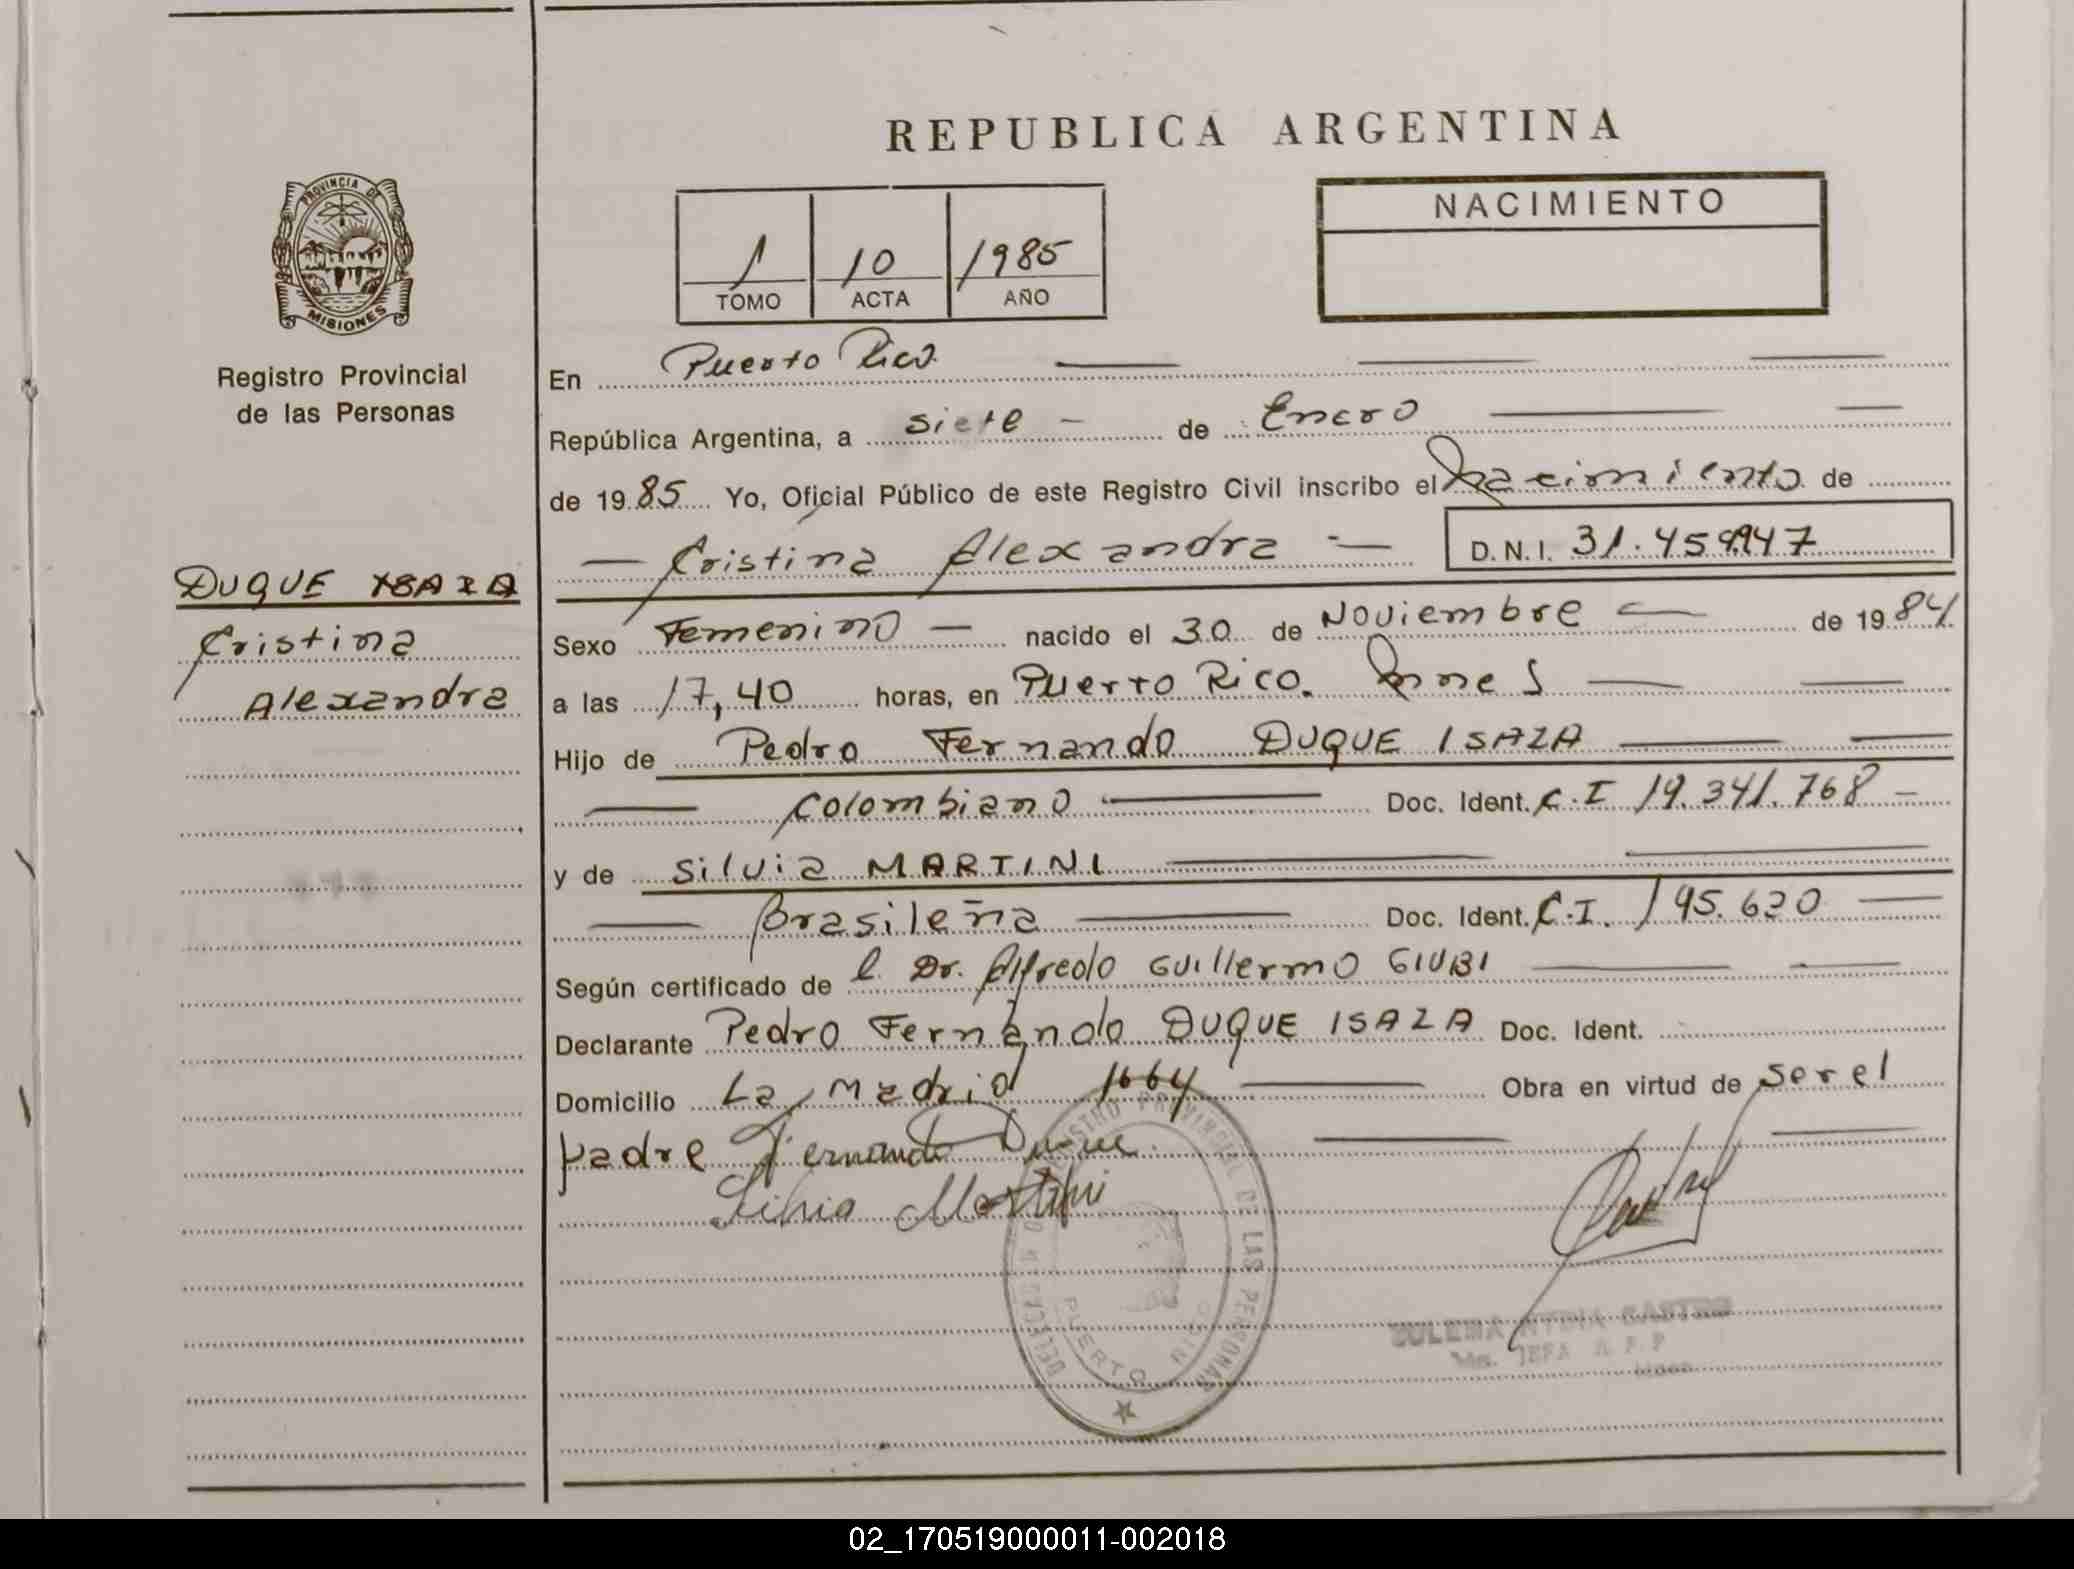 REPUBLICA ARGENTINA
PROVINCIA DE
MISIONES
Registro Provincial
de las Personas
1 10 1985
TOMO ACTA AÑO
NACIMIENTO
En Puerto Rico
República Argentina, a siete de Enero
de 1985 Yo, Oficial Público de este Registro Civil inscribo el Nacimiento de
Cristina Alexandra D.N.I. 31.459.947
DUQUE ISAZA
Cristina
Alexandra
Sexo Femenino nacido el 30 de Noviembre de 1984
a las 17,40 horas, en Puerto Rico.
Hijo de Pedro Fernando DUQUE ISAZA
Colombiano Doc. Ident. C.I 19.341.768
y de Silvia MARTINI
Brasileña Doc. Ident. C.I. 195.620
Según certificado de l. Dr. Alfredo Guillermo GIUBI
Declarante Pedro Fernando DUQUE ISAZA Doc. Ident.
Domicilio La Madrid 1664 Obra en virtud de ser el
padre Fernando Duque
Silvia Martini
REGISTRO PROVINCIAL DE LAS PERSONAS
PUERTO RICO
02_170519000011-002018